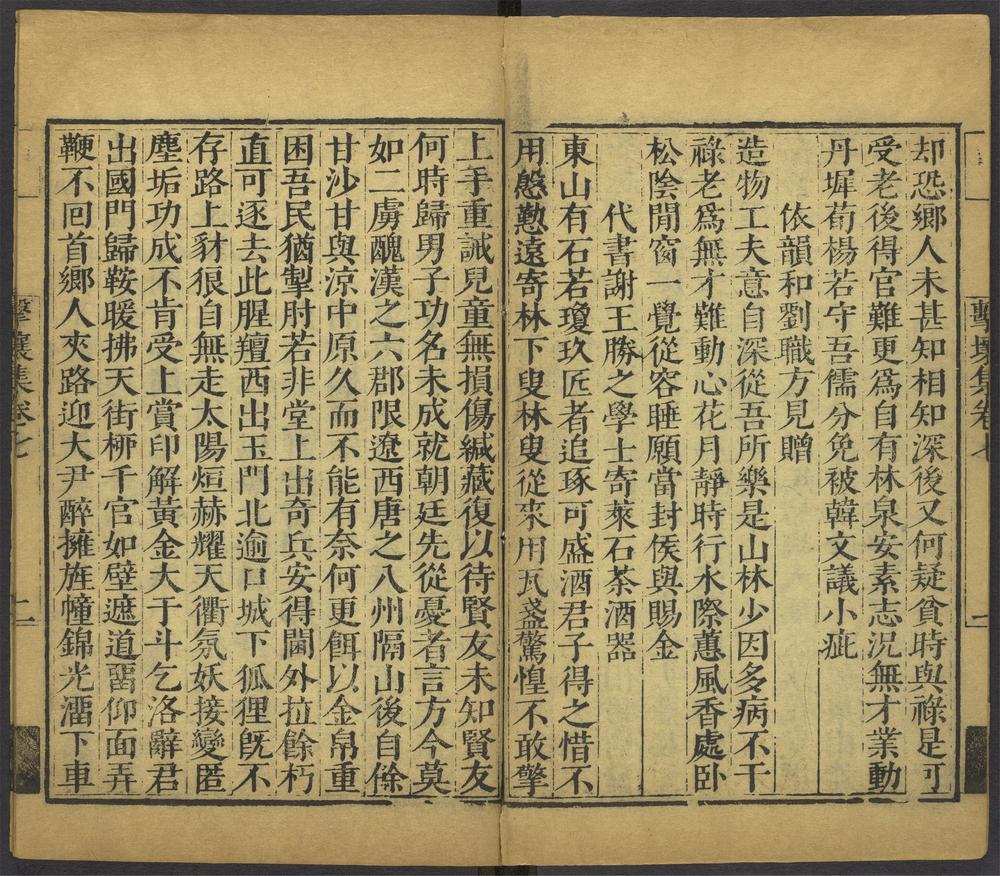 却恐鄉人未甚知相知深後又何疑貧時與祿是可
受老後得官難更爲自有林泉安素志況無才業動
丹墀荀楊若守吾儒分免被韓文議小疵
依韻和劉職方見贈
造物工夫意自深從吾所樂是山林少因多病不干
祿老爲無才難動心花月靜時行水際蕙風香處卧
松陰閒窗一覺從容睡願當封侯與賜金
代書謝王勝之學士寄萊石茶酒器
東山有石若瓊玖匠者追琢可盛酒君子得之惜不
用慇懃遠寄林下叟林叟從來用瓦盞驚惶不敢擎
擊壤集卷七
一
上手重誡兒童無損傷緘藏復以待賢友未知賢友
何時歸男子功名未成就朝廷先從憂者言方今莫
如二虜醜漢之六郡限遼西唐之八州隔山後自餘
甘沙甘與涼中原久而不能有奈何更餌以金帛重
困吾民猶掣肘若非堂上出奇兵安得閫外拉餘朽
直可逐去此腥羶西出玉門北逾口城下狐狸旣不
存路上豺很自無走太陽烜赫耀天衢氛妖接變匿
塵垢功成不肯受上賞印解黃金大于斗乞洛辭君
出國門歸鞍暖拂天街桺千官如壁遮道畱仰面弄
鞭不回首鄉人夾路迎大尹醉擁旌幢錦光㵽下車
擊壤集卷七
二